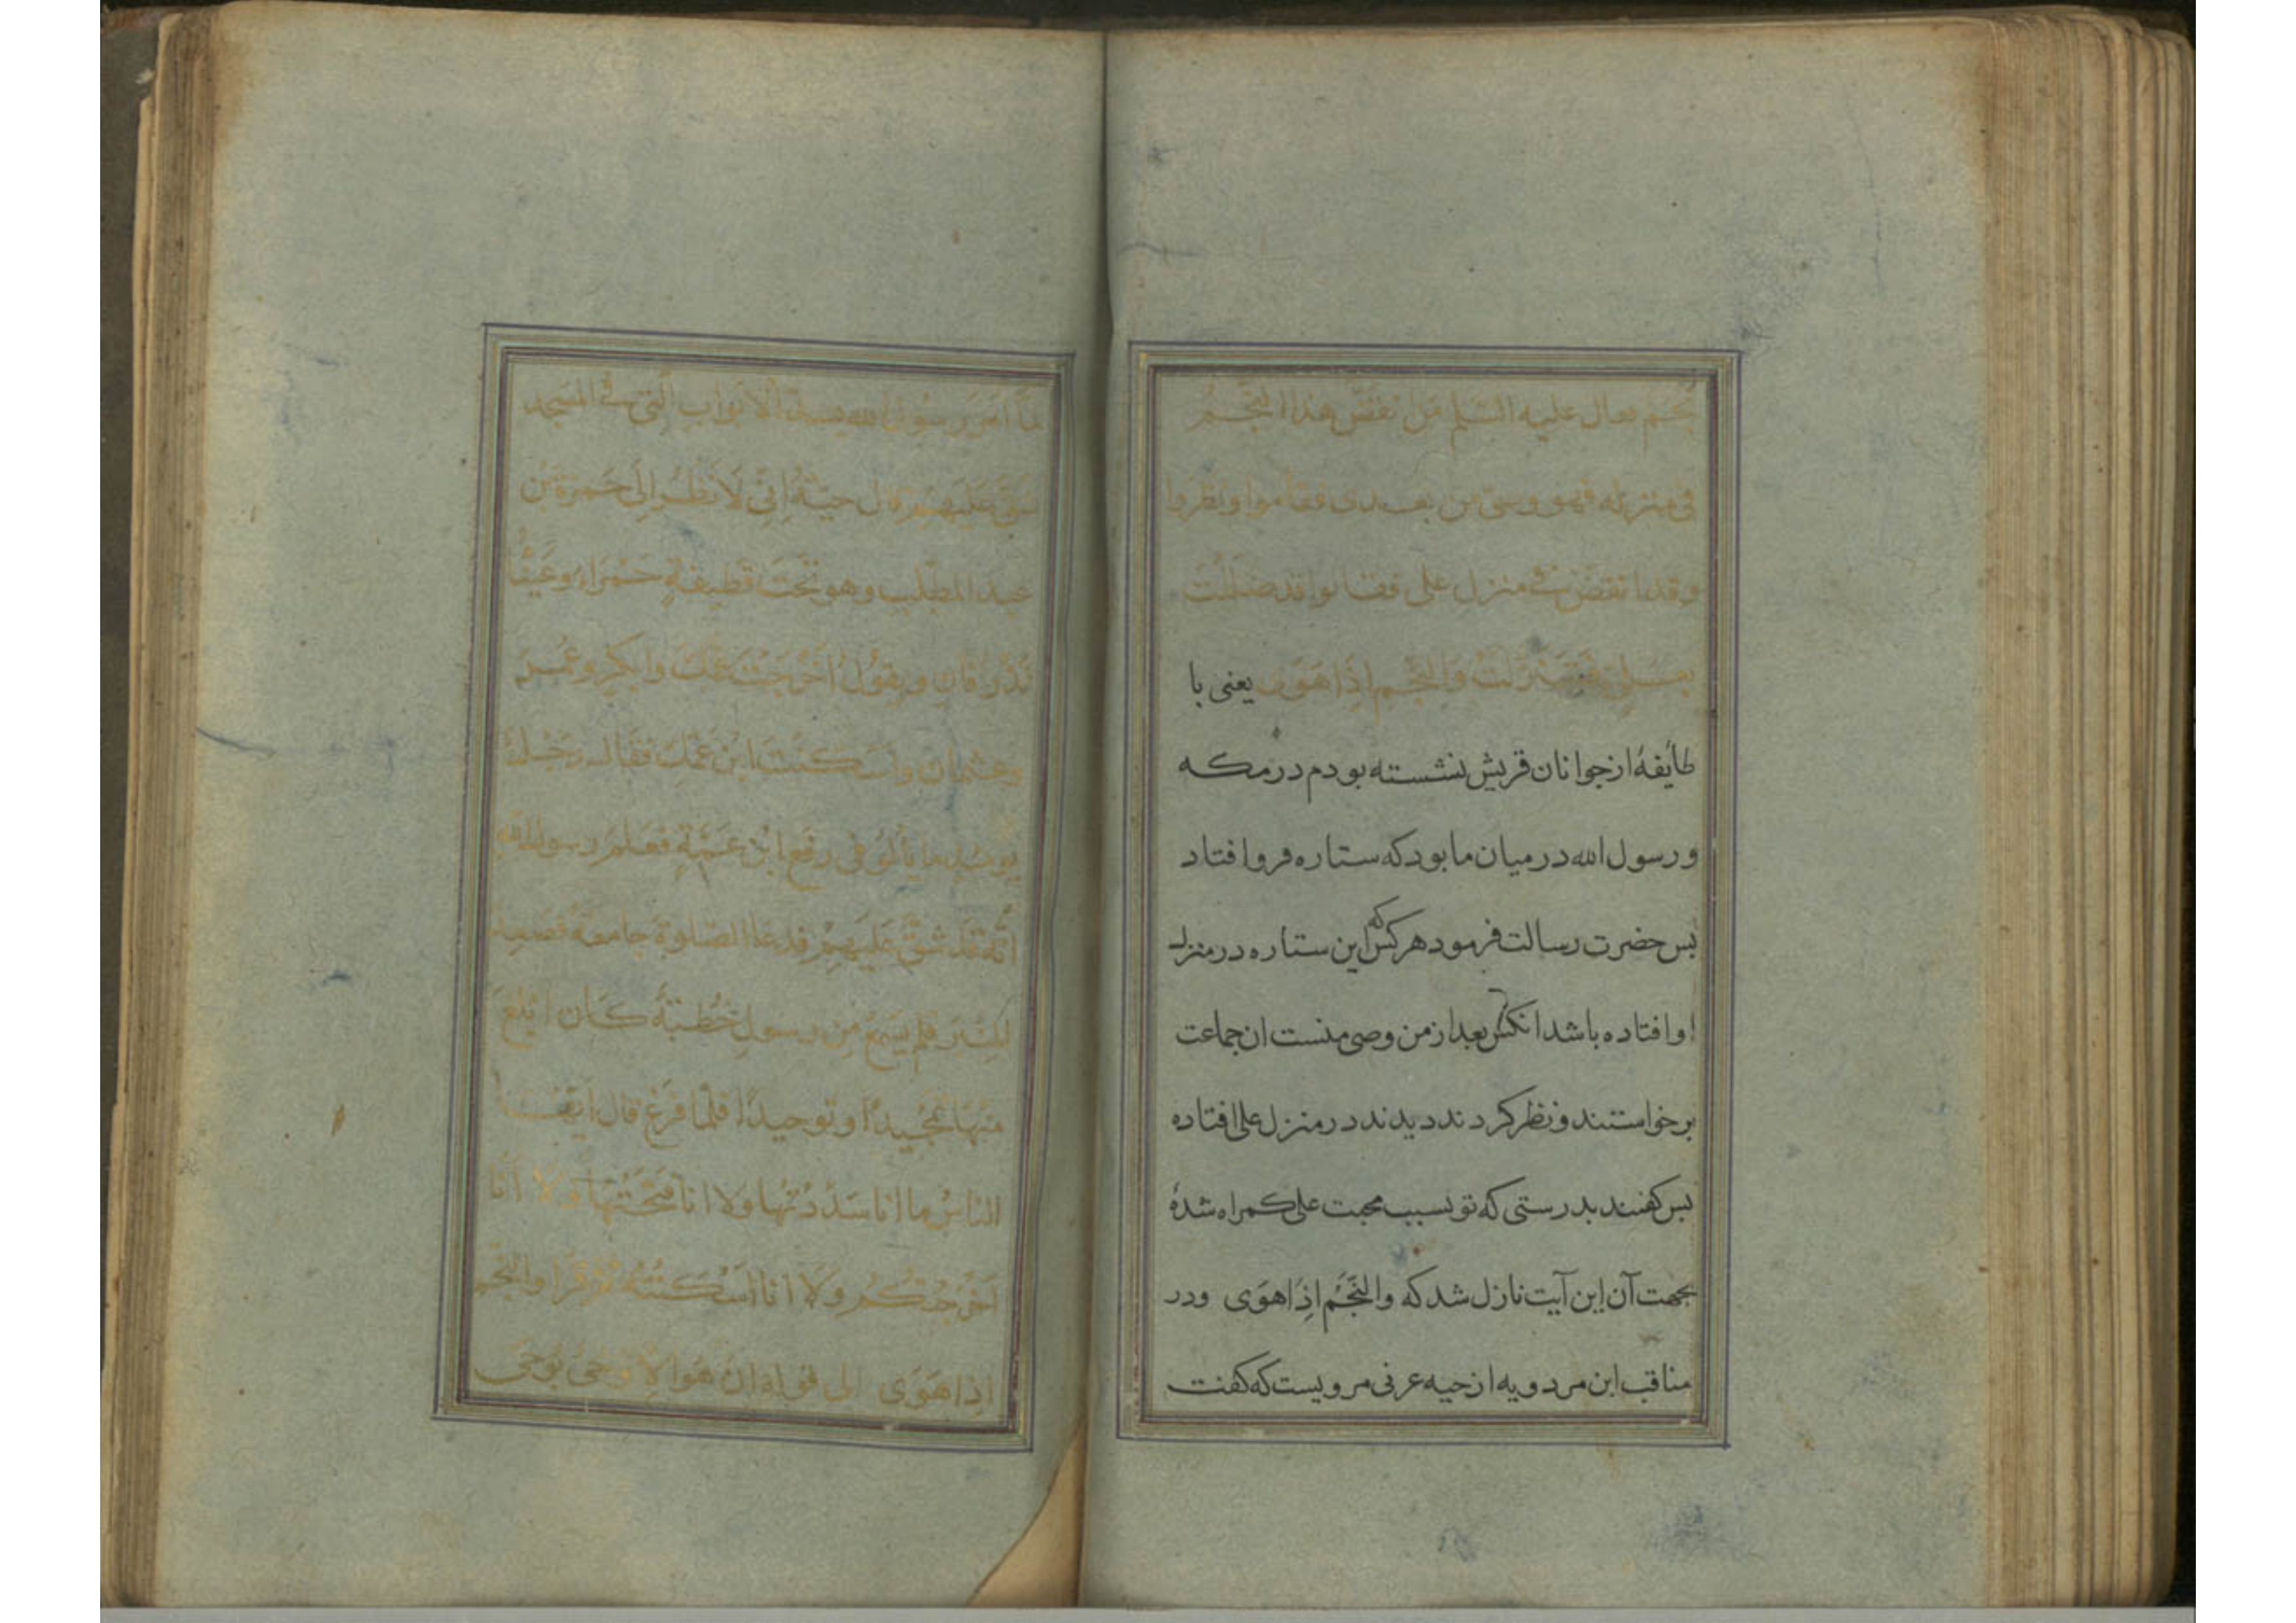 نجم فقال علیه السلم من نقض هذا النجم
فی منزله فهو وصی من بعدی فقاموا ونظروا
وقد انقض فی منزل علی فقالوا قد ضللت
بعلی فنزلت والنجم اذا هوی یعنی با
طایفهٔ از جوانان قریش نشسته بودم در مکه
و رسول الله در میان ما بود که ستاره فرو افتاد
بس حضرت رسالت فرمود هر کس که این ستاره در منزل
او افتاده باشد انکس بعد از من وصی منست ان جماعت
برخواستند و نظر کردند دیدند در منزل علی افتاده
بس کفتند بدرستی که تو بسبب محبت علی کمراه شدهٔ
بجهت آن این آیت نازل شد که والنَّجْمِ اِذَا هَوَی ودر
مناقب ابن مردویه از حیه عرنی مرویست که کفت
لمّا امر رسول الله بسد الابواب الّتی فی المسجد
شقّ علیهم قال حیّة اِنّی لَاَنظر اِلی حَمزة بن
عبد المطّلب وهو تحت قطیفةٍ حَمراء وعَیناه
تذرفان ویقول اَخرجت عمّک وابابکر وعُمر
وعثمان واَسکنتَ ابن عمّک فقال رجل
یومئذٍ ما یألو فی رفع ابن عمّه فعلم رسول الله
انّه قد شقّ علیهم فدعا الصلوة جامعة فصعد
المنبر فلم یسمع من رسول خُطبةٌ کان ابلغ
منها تمجیدًا وتوحیدًا فلمّا فرغ قال ایّها
الناسُ ما انا سددتُها ولا انا فتحتُها ولا اَنا
اخرجتکم ولا انا اَسکنته ثم قرا والنّجم
اِذا هَوَی الی قوله ان هو الّا وحی یوحی